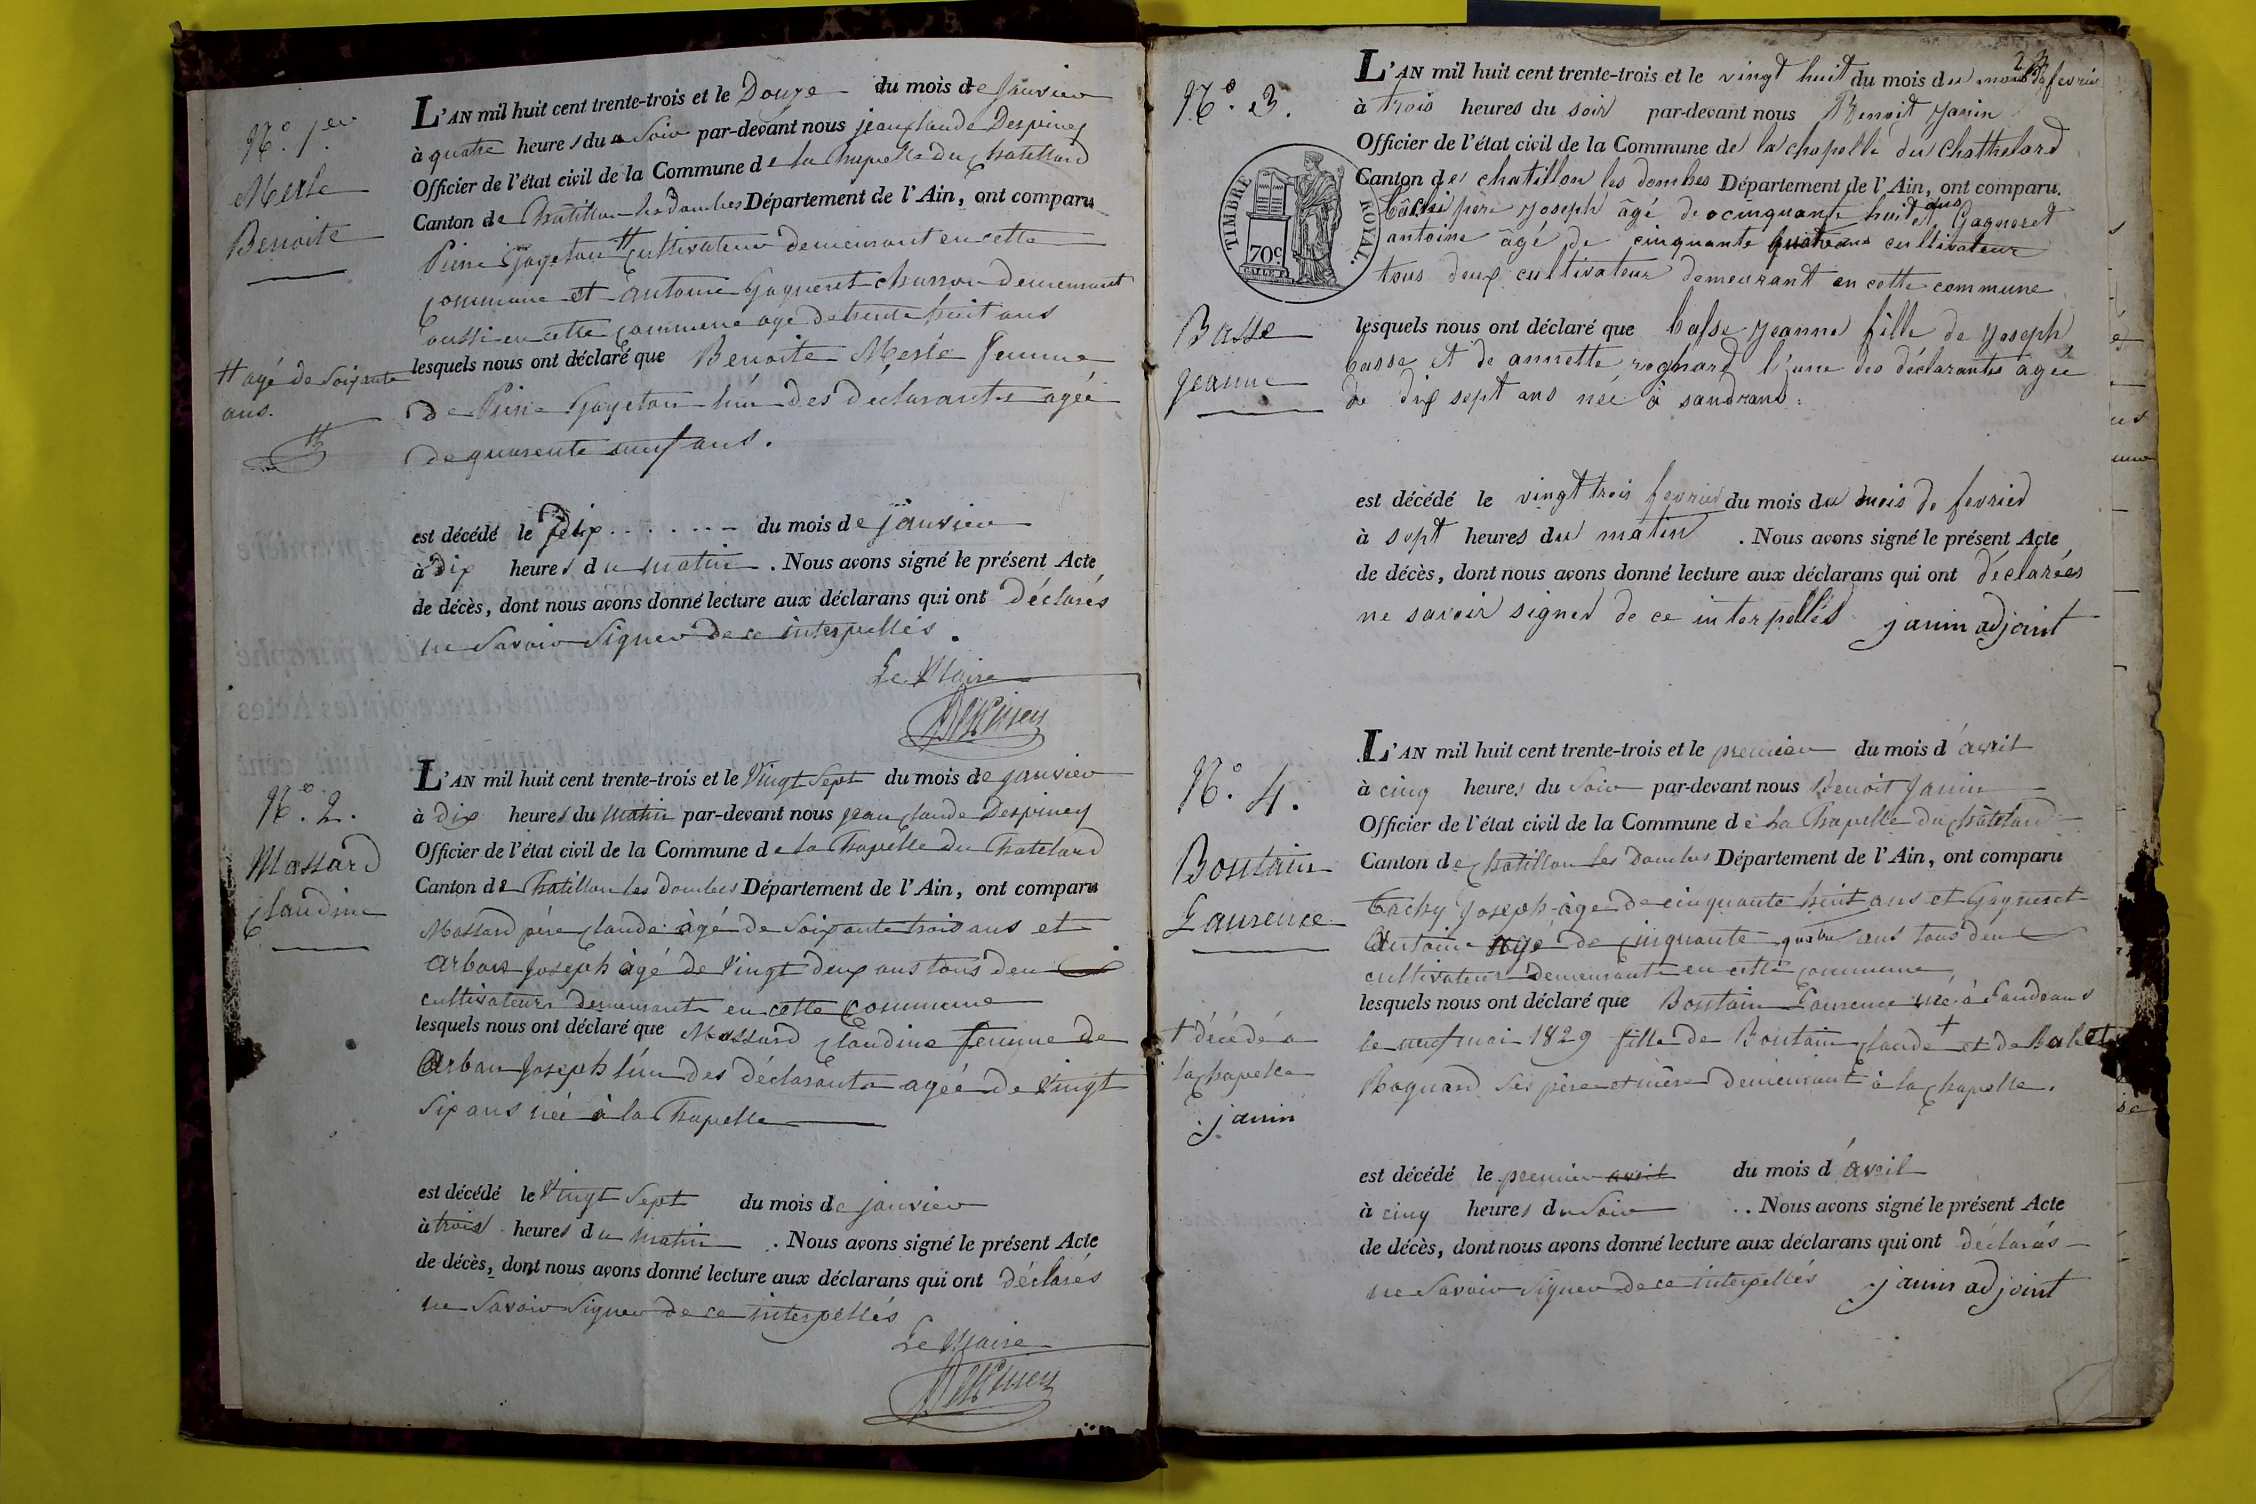 N.º 1.er
Merle
Benoite
L'AN mil huit cent trente-trois et le Douze du mois de Janvier
à quatre heures du Soir par-devant nous jean claude Despiney
Officier de l'état civil de la Commune de la Chapelle du Chatellard
Canton de Chatillon les Dombes Département de l'Ain, ont comparu
Pierre Gayetou # Cultivateur demeurant en cette
Commune et Antoine Gagneret charron demeurant
aussi en cette commune agé de trente huit ans
# agé de Soixante
ans.
lesquels nous ont déclaré que Benoite Merle femme
de Pierre Gayetou l'un des déclarants agée
de quarente neuf ans.
est décédé le dix du mois de janvier
à Dix heures du matin . Nous avons signé le présent Acte
de décès, dont nous avons donné lecture aux déclarans qui ont Déclarés
ne Savoir Signer de ce interpellés.
Le Maire
Despiney
N.º 2.
Massard
Claudine
L'AN mil huit cent trente-trois et le Vingt Sept du mois de janvier
à Dix heures du matin par-devant nous jean claude Despiney
Officier de l'état civil de la Commune de la Chapelle du Chatelard
Canton de Chatillon les Dombes Département de l'Ain, ont comparu
Massard père Claude âgé de Soixante trois ans et
Arban Joseph âgé de Vingt deux ans tous deux
cultivateurs demeurant en cette Commune
lesquels nous ont déclaré que Massard Claudine femme de
Arban Joseph l'un des déclarants agée de Vingt
Six ans née à la Chapelle
est décédé le Vingt Sept du mois de janvier
à trois heures du matin . Nous avons signé le présent Acte
de décès, dont nous avons donné lecture aux déclarans qui ont déclarés
ne Savoir Signer de ce interpellés
Le Maire
Despiney
N.º 3.
L'AN mil huit cent trente-trois et le vingt huit du mois du mois de fevrier
à trois heures du soir par-devant nous Benoit Janin
Officier de l'état civil de la Commune de la chapelle du Chathelard
Canton de chatillon les dombes Département de l'Ain, ont comparu.
TIMBRE ROYAL.
70c
père Joseph âgé de cinquante huit ans et Gagneret
antoine âgé de cinquante quatre ans cultivateur
tous deux cultivateur demeurant en cette commune
Basse
Jeanne
lesquels nous ont déclaré que basse Jeanne fille de Joseph
basse et de annette roghard l'une des déclarantes agée
de dix sept ans née à sandrans.
est décédé le vingt trois fevrier du mois du mois de fevrier
à sept heures du matin . Nous avons signé le présent Acte
de décès, dont nous avons donné lecture aux déclarans qui ont déclarées
ne savoir signer de ce interpellés janin adjoint
N.º 4.
Boutain
Laurence
L'AN mil huit cent trente-trois et le premier du mois d'avril
à cinq heures du Soir par-devant nous Benoit Janin
Officier de l'état civil de la Commune de la Chapelle du Châtelard
Canton de Chatillon les Dombes Département de l'Ain, ont comparu
Joseph âgé de cinquante huit ans et Gagneret
Antoine âgé de Cinquante quatre ans tous deux
cultivateurs demeurant en cette commune,
lesquels nous ont déclaré que Boutain Laurence née à Sandrans
le neuf mai 1829 fille de Boutain Claude + et de
Roguard Ses père et mère demeurant à la Chapelle.
+ décédé a
la Chapelle
janin
est décédé le premier avril du mois d'avril
à cinq heures du Soir . . Nous avons signé le présent Acte
de décès, dont nous avons donné lecture aux déclarans qui ont déclarés
ne Savoir Signer de ce interpellés janin adjoint